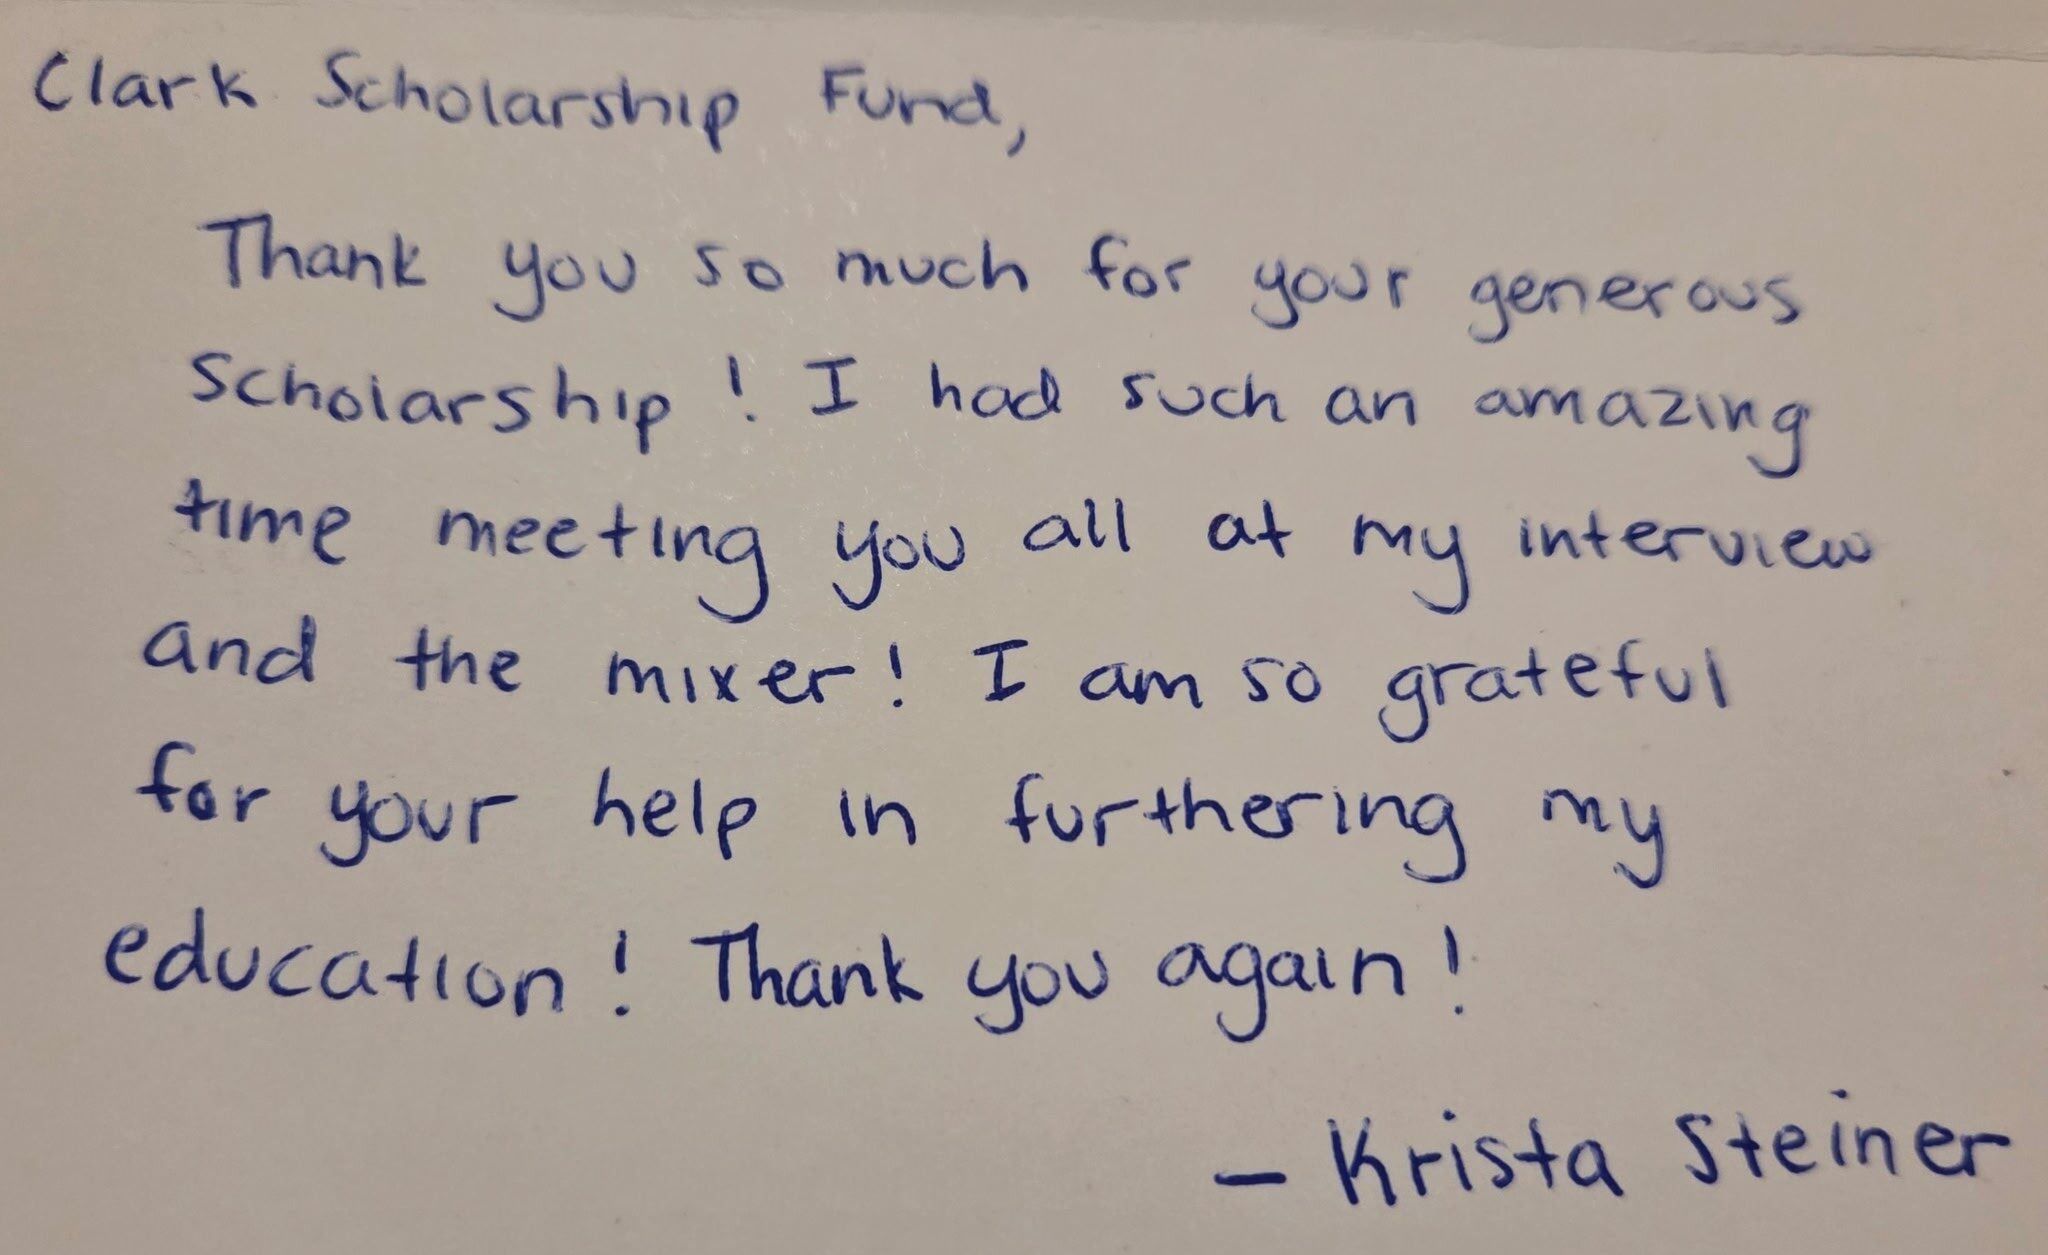 Clark Scholarship Fund,
Thank you so much for your generous
scholarship! I had such an amazing
time meeting you all at my interview
and the mixer! I am so grateful
for your help in furthering my
education! Thank you again!
- Krista Steiner